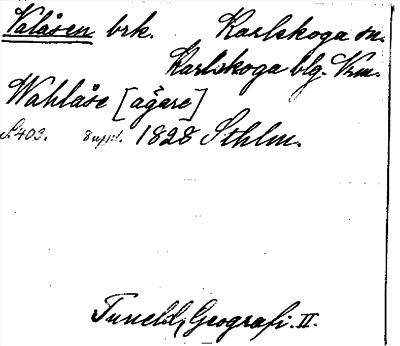 Valåsen brk. Karlskoga sn.
Karlskoga blg. Vrm.
Wahlåse [ägare]
S. 403. Suppl. 1828 Sthlm.
Tuneld, Geografi. II.